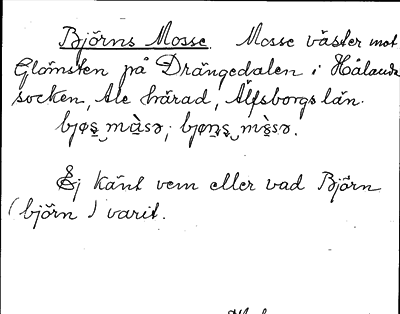 Björns Mosse. Mosse väster mot
Glömsten på Drängedalen i Hålanda
socken, Ale härad, Älfsborgs län.
bjøs̱ màsə; bjøṉs̱ mɛ̀sə.
Ej känt vem eller vad Björn
(björn) varit.